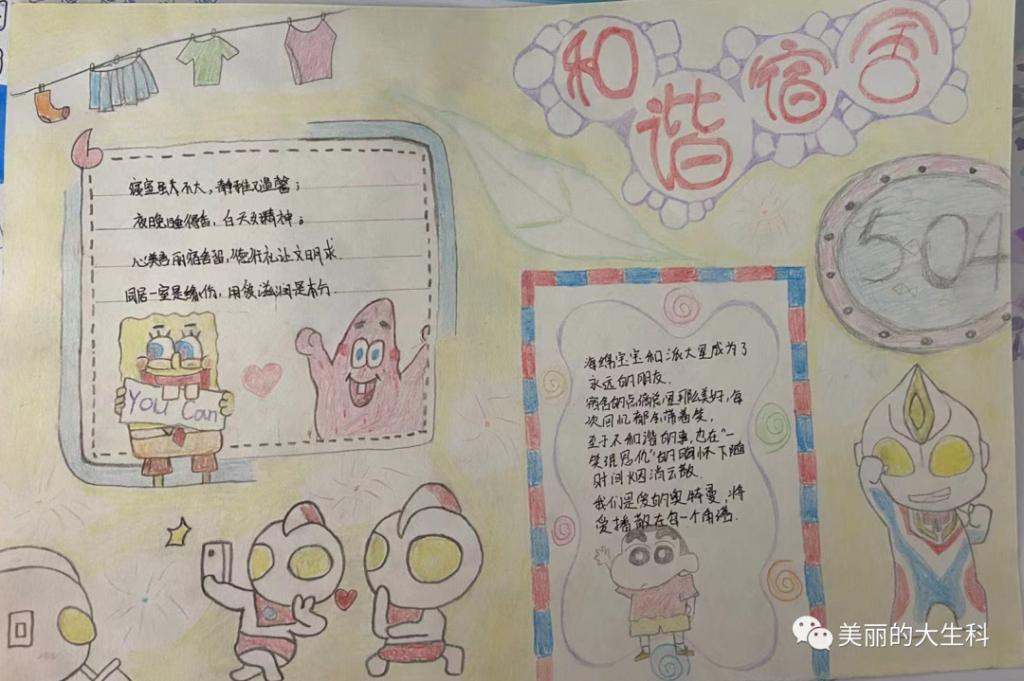 和谐宿舍
504
寝室虽然不大，静雅又温馨；
夜晚睡得香，白天好精神；
心美秀丽宿舍留，德行礼让文明求.
同居一室是缘份，用爱滋润是本分.
You Can
海绵宝宝和派大星成为了
永远的朋友.
宿舍的点滴总是那么美好，每
次回忆都会带着笑，
至于不和谐的事，也在“一
笑泯恩仇”的胸怀下随
时间烟消云散.
我们是爱的奥特曼，将
爱播散在每一个角落.
美丽的大生科